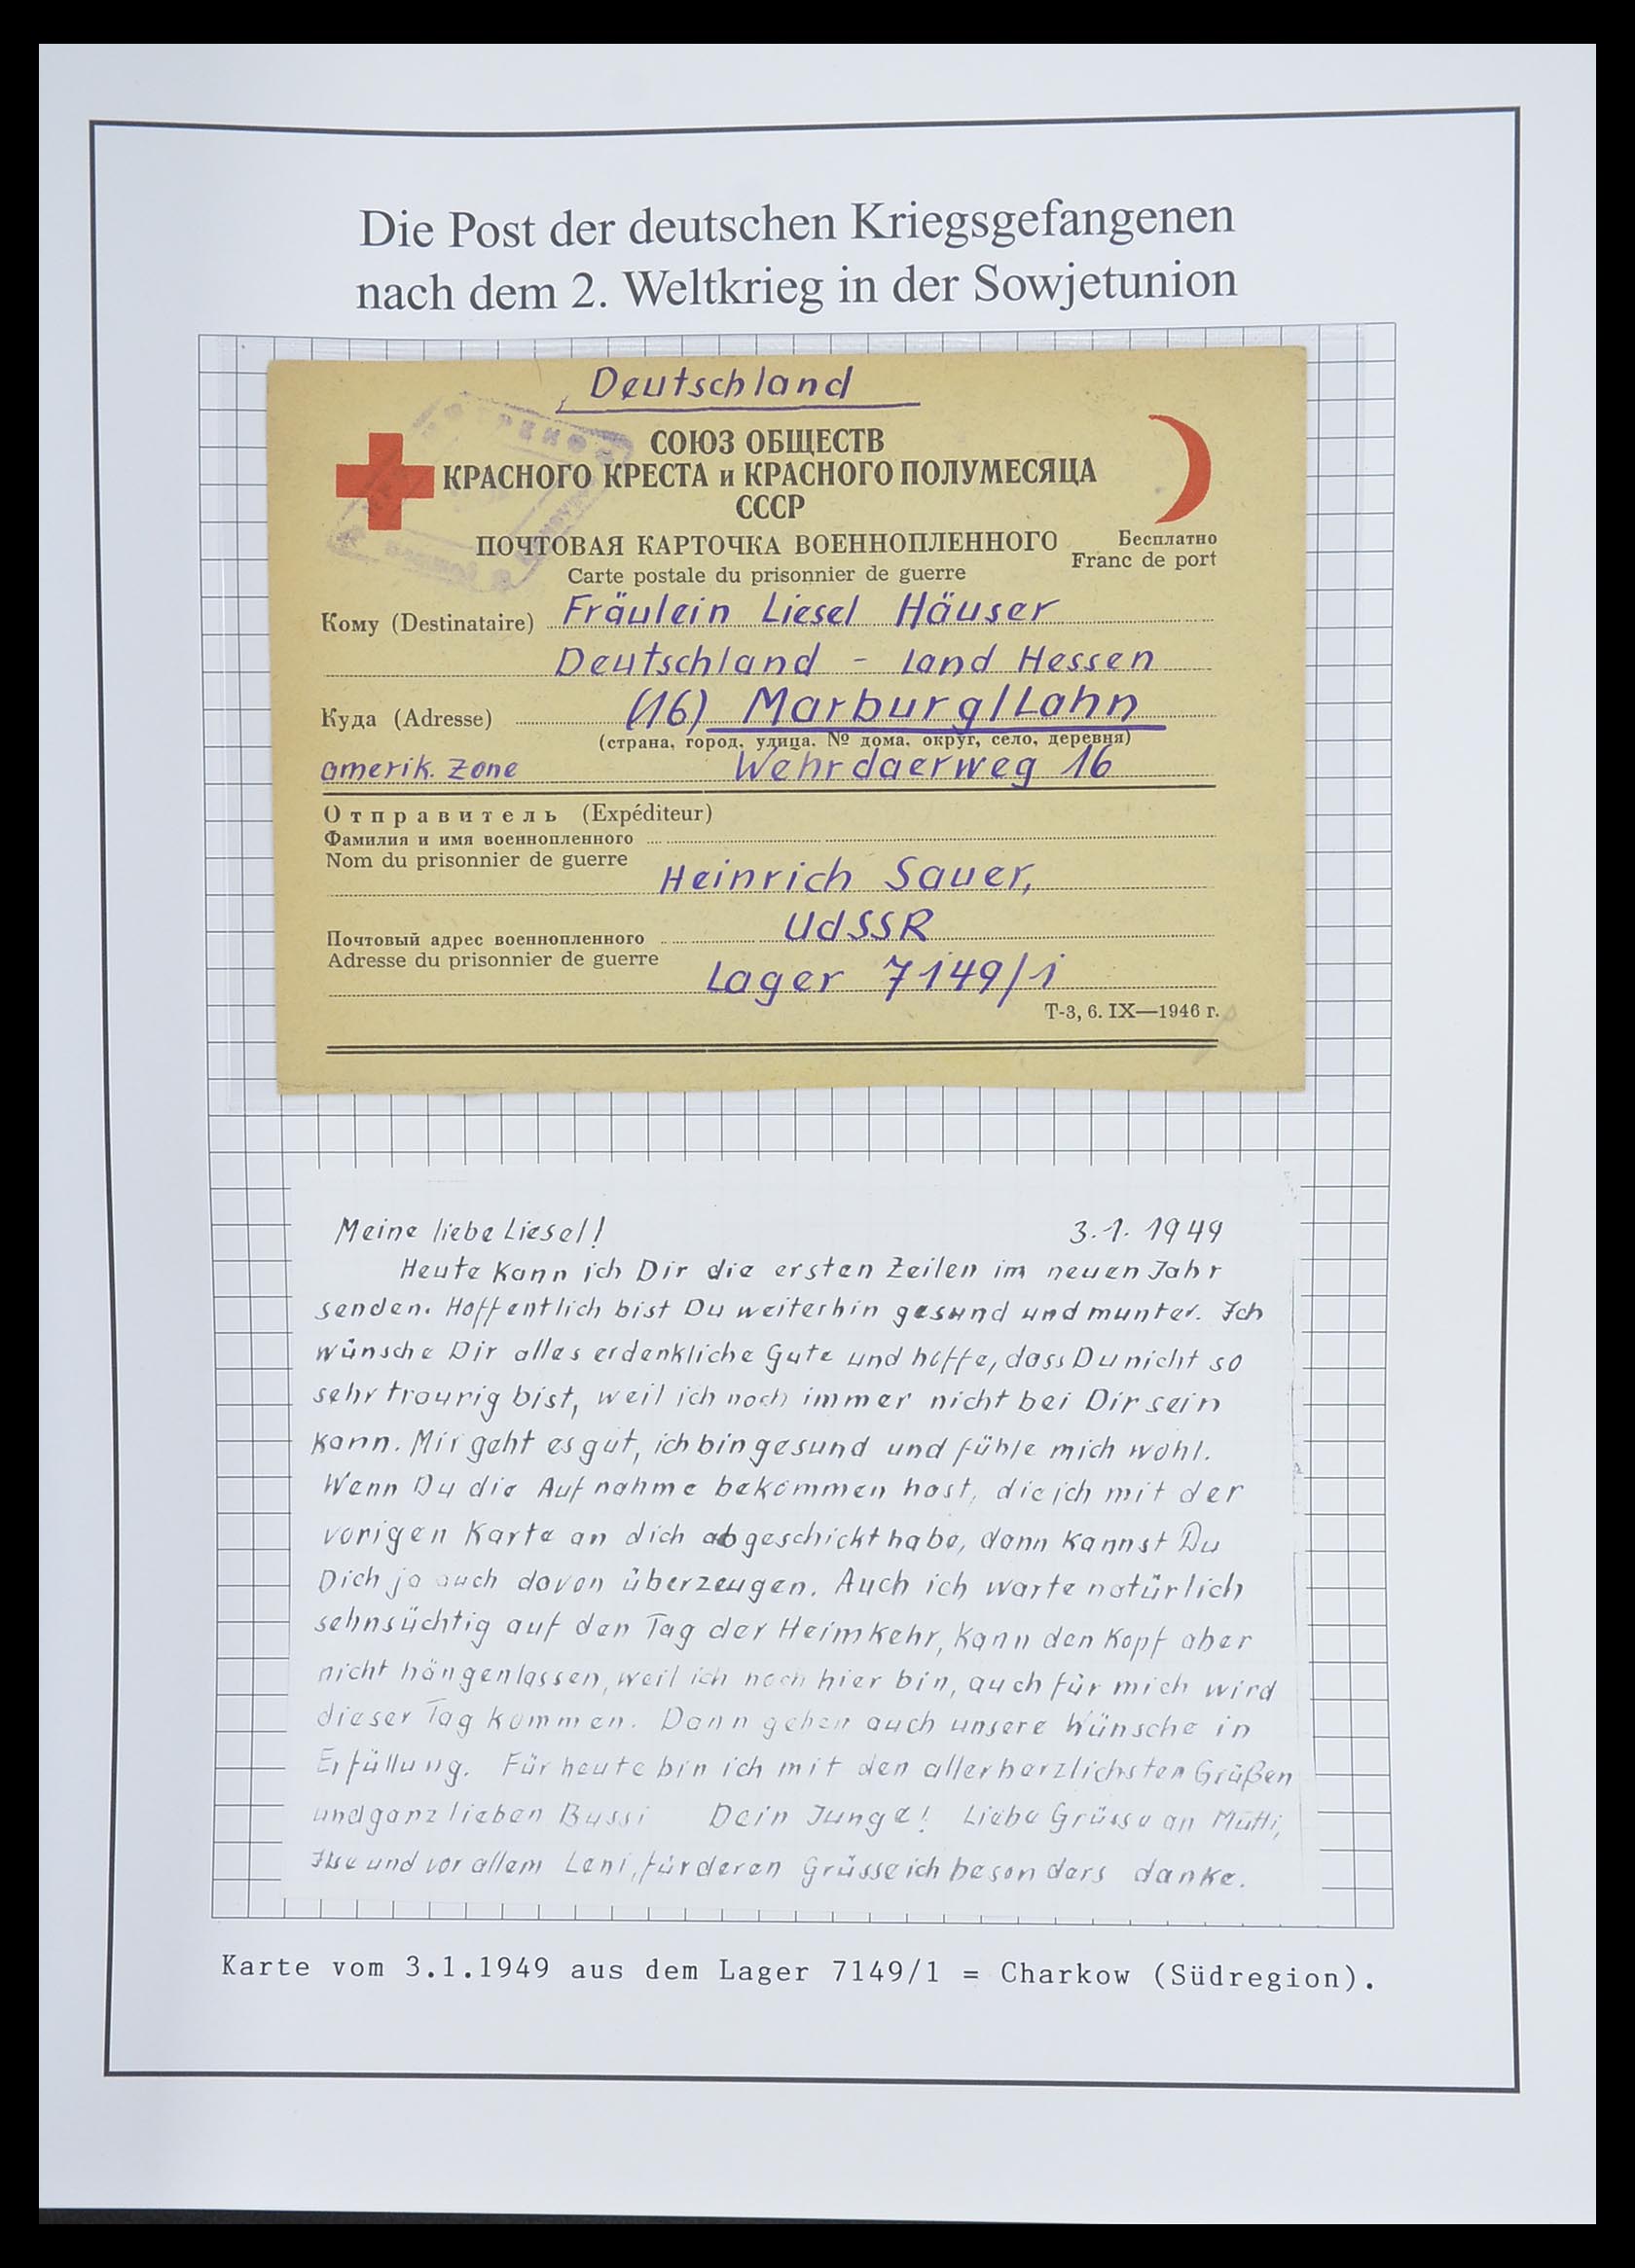 Die Post der deutschen Kriegsgefangenen
nach dem 2. Weltkrieg in der Sowjetunion
Deutschland
СОЮЗ ОБЩЕСТВ
КРАСНОГО КРЕСТА и КРАСНОГО ПОЛУМЕСЯЦА
СССР
ПОЧТОВАЯ КАРТОЧКА ВОЕННОПЛЕННОГО
Бесплатно
Carte postale du prisonnier de guerre
Franc de port
Кому (Destinataire) Fräulein Liesel Häuser
Deutschland - Land Hessen
Куда (Adresse) (16) Marburg/Lahn
(страна, город, улица, № дома, округ, село, деревня)
amerik. Zone Wehrdaerweg 16
Отправитель (Expéditeur)
Фамилия и имя военнопленного
Nom du prisonnier de guerre
Heinrich Sauer,
UdSSR
Почтовый адрес военнопленного
Adresse du prisonnier de guerre
Lager 7149/1
Т-3, 6. IX—1946 г.
Meine liebe Liesel! 3.1.1949
Heute kann ich Dir die ersten Zeilen im neuen Jahr
senden. Hoffentlich bist Du weiterhin gesund und munter. Ich
wünsche Dir alles erdenkliche Gute und hoffe, dass Du nicht so
sehr traurig bist, weil ich noch immer nicht bei Dir sein
kann. Mir geht es gut, ich bin gesund und fühle mich wohl.
Wenn Du die Aufnahme bekommen hast, die ich mit der
vorigen Karte an dich abgeschickt habe, dann kannst Du
Dich ja auch davon überzeugen. Auch ich warte natürlich
sehnsüchtig auf den Tag der Heimkehr, kann den Kopf aber
nicht hängenlassen, weil ich noch hier bin, auch für mich wird
dieser Tag kommen. Dann gehen auch unsere Wünsche in
Erfüllung. Für heute bin ich mit den allerherzlichsten Grüßen
und ganz lieben Bussi Dein Junge! Liebe Grüsse an Mutti,
Ilse und vor allem Leni, für deren Grüsse ich besonders danke.
Karte vom 3.1.1949 aus dem Lager 7149/1 = Charkow (Südregion).